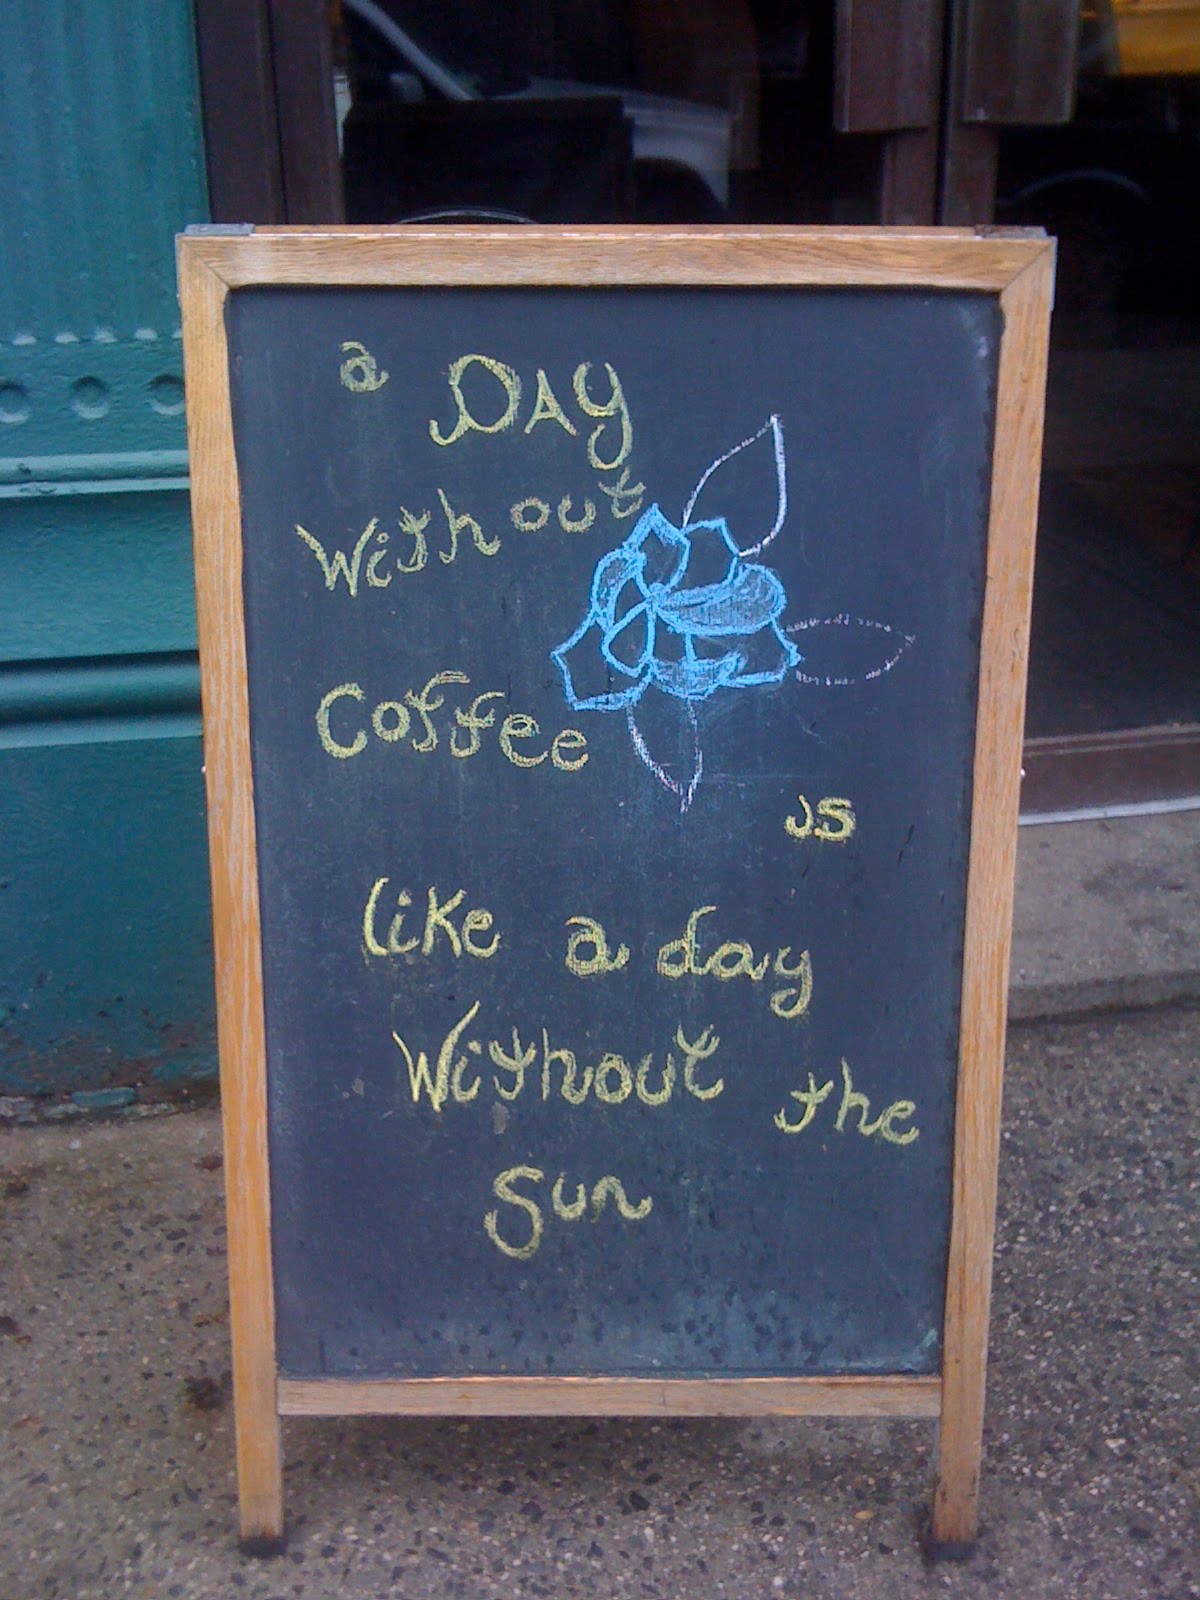 a DAy
Without
Coffee
is
like a day
Without the
Sun